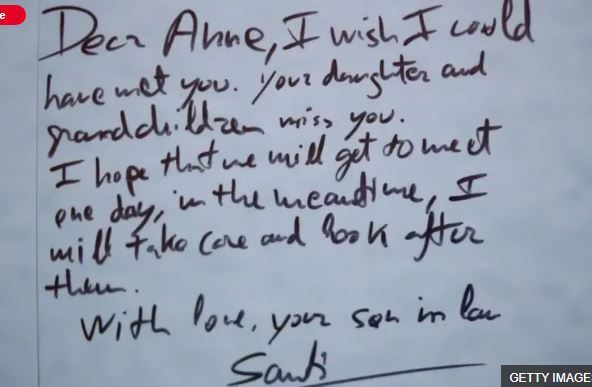 e
Dear Anne, I wish I could
have met you. Your daughter and
grandchildren miss you.
I hope that we will get to meet
one day, in the meantime, I
will take care and look after
them.
With love, your son in law
Santi
GETTY IMAGE